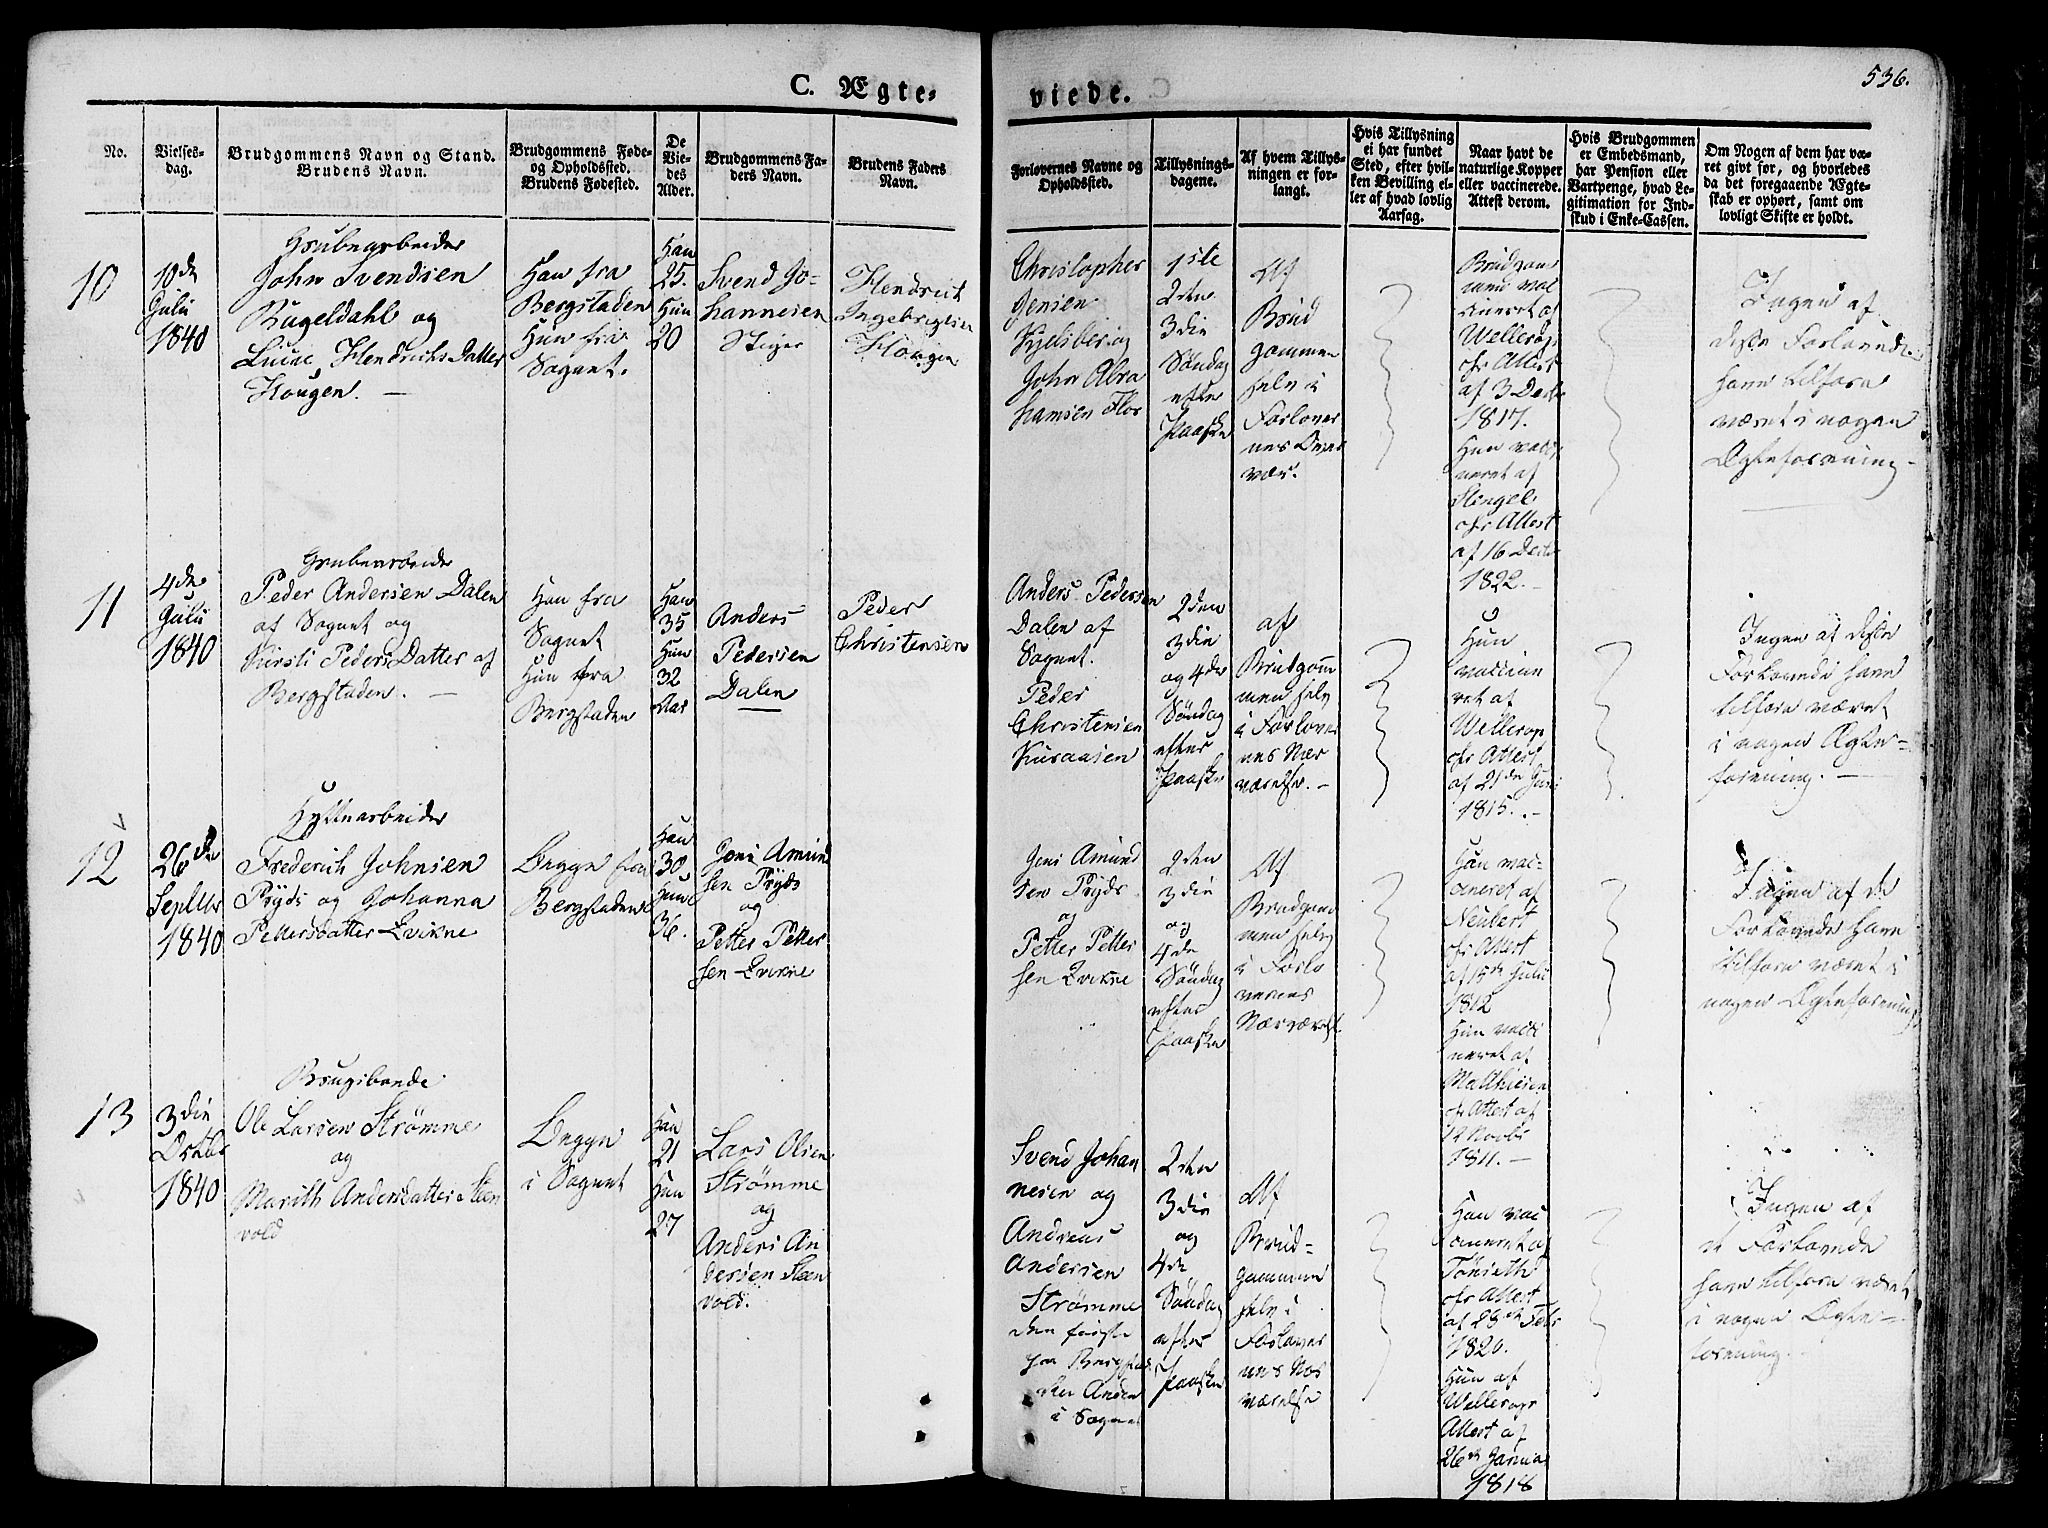 C. Ægte-
viede.
536.
No.
Vielses-
dag.
Brudgommens Navn og Stand.
Brudens Navn.
Brudgommens Føde-
og Opholdssted.
Brudens Fødested.
De
Vie-
des
Alder.
Brudgommens Fa-
ders Navn.
Brudens Faders
Navn.
Forlovernes Navne og
Opholdssted.
Tillysnings-
dagene.
Af hvem Tillys-
ningen er for-
langt.
Hvis Tillysning
ei har fundet
Sted, efter hvil-
ken Bevilling el-
ler af hvad lovlig
Aarsag.
Naar havt de
naturlige Kopper
eller vaccinerede.
Attest derom.
Hvis Brudgommen
er Embedsmand,
har Pension eller
Vartpenge, hvad Le-
gitimation for Ind-
skud i Enke-Cassen.
Om Nogen af dem har væ-
ret givt før, og hvorledes
da det foregaaende Ægte-
skab er ophørt, samt om
lovligt Skifte er holdt.
10
10de
Juli
1840
Grubearbeider
John Svendsen
Rugeldahl og
Hendrichs Datter
Hougen.
Han fra
Bergstaden
Hun fra
Sognet.
Han
25.
Hun
20
Svend Jo-
hannesen
Stiger
Hendrich
Ingebrigtsen
Hougen
Christopher
Jensen
John Abra
hamsen Flor
1ste
2den
3die
Søndag
efter
Paaske
Af
Brud
gommen
selv i
Forlover
nes Nær
vær.
Brudgom
men vac
cineret af
Wellerop
Attest
af 3 Decbr
1817.
Hun vacci
neret af
Stengel
Attest
af 16 Decbr
1822.
Ingen af
disse Forlovede
have tilforn
været i nogen
Ægteforening
11
4de
Juli
1840
Grubearbeider
Peder Andersen Dalen
af Sognet og
Kirsti Peders Datter af
Bergstaden.
Han fra
Sognet
Hun fra
Bergstaden
Han
35
Hun
32
Aar
Anders
Pedersen
Dalen
Peder
Christensen
Anders Pedersen
Dalen af
Sognet.
Peder
Christensen
2den
3die
og 4de
Søndag
efter
Paaske
af
Brudgom
men selv
i Forlover
nes Nær
værelse.
Hun
vaccine
ret af
Wellerop
Attest
af 21de Juni
1815.
Ingen af disse
Forlovede have
tilforn været
i nogen Ægte-
forening.
12
26de
Septbr
1840
Hyttearbeider
Frederich Johnsen
Pryds og Johanna
Pettersdatter Qvikne
Begge fra
Bergstaden
Han
30
Hun
36.
Jens Amund
sen Pryds
og
Petter Petter
sen Qvikne
Jens Amund
sen Pryds
og
Petter Petter
sen Qvikne
2den
3die
og
4de
Søndag
efter
Paaske
Af
Brudgom
men selv
i Forlo
vernes
Nærværelse
Han vac-
cineret af
Neubert
Attest
af 15de Juli
1812
Hun vacci
neret af
Matthiesen
Attest af
12 Novbr
1811.
Ingen af de
Forlovede have
tilforn været i
nogen Ægteforening
13
3die
Octbr
1840
Brugsbonde
Ole Larsen Strømme
og
Marith Andersdatter Steen
vold
Begge
i Sognet
Han
21
Hun
27
Lars Olsen
Strømme
og
Anders An
dersen Steen
vold.
Svend Johan
nesen og
Andreas
Andersen
Strømme
den første
paa Bergstad
den Anden
i Sognet
2den
3die
og
4de
Søndag
efter
Paaske
Af
Brud-
gommen
selv i
Forlover
nes Nær
værelse
Han vac
cineret af
Tønseth
Attest
af 28de Febr
1820.
Hun af
Wellerops
Attest af
26de Janua
1818
Ingen af
de Forlovede
have tilforn været
i nogen Ægte-
forening.